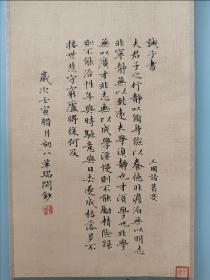 誡子書
三國 諸葛亮
夫君子之行靜以修身儉以養德非澹泊無以明志
非寧靜無以致遠夫學須靜也才須學也非學
無以廣才非志無以成學淫慢則不能勵精險躁
則不能治性年與時馳意與日去遂成枯落多不
接世悲守窮廬將復何及
歲次壬寅臘月初八 瑞 鈔